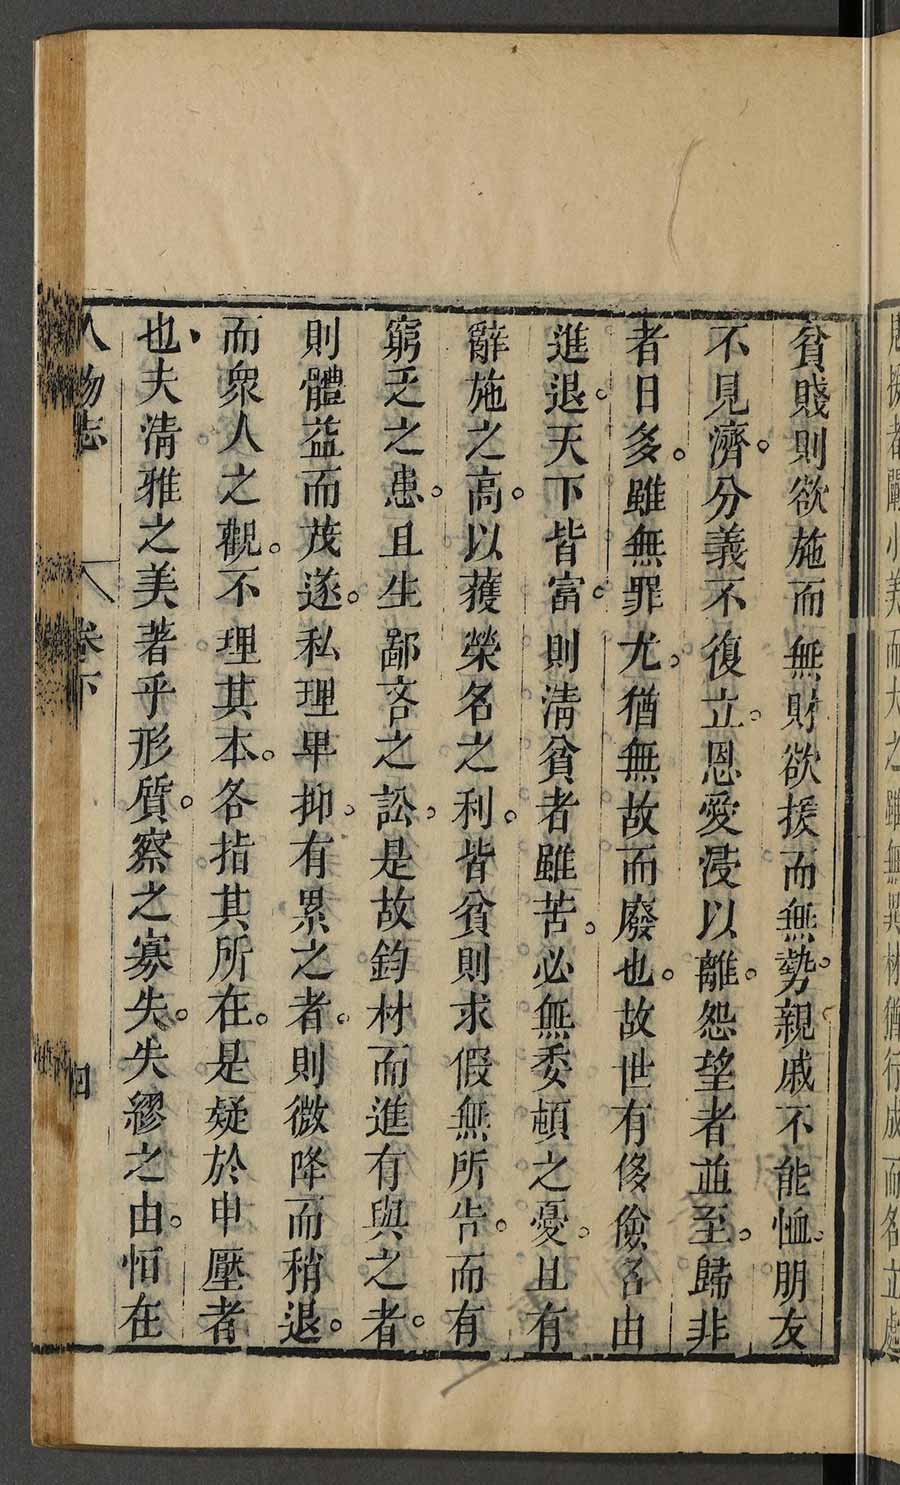 貧賤則欲施而無財欲援而無勢。親戚不能恤。朋友
不見濟。分義不復立。恩愛浸以離。怨望者並至。歸非
者日多。雖無罪尤。猶無故而廢也。故世有侈儉名由
進退。天下皆富。則清貧者雖苦。必無委頓之憂。且有
辭施之高。以獲榮名之利。皆貧則求假無所告。而有
窮乏之患。且生鄙吝之訟。是故鈞材而進有與之者。
則體益而茂遂。私理卑抑。有累之者。則微降而稍退。
而眾人之觀。不理其本。各指其所在。是疑於申壓者
也夫清雅之美著乎形質。察之寡失。失繆之由。恒在
人物志 卷下 四